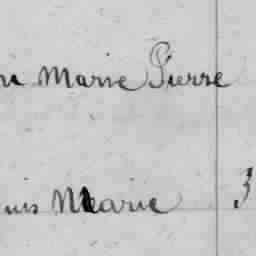 Marie Pierre
uis Marie 3